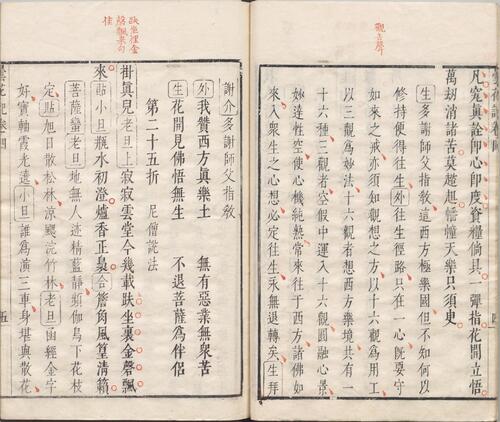 凡究眞詮卽心卽度資糧倘具一彈指花開立悟
萬刼消諸苦莫趦趄幢天樂只須臾
生多謝師父指敎這西方極樂國但不知何以
修持便得往生外往生徑路只在一心旣要守
如來之戒亦須如觀想之方以十六觀爲用工
以三觀爲妙法十六觀者想西方樂境共有一
十六種三觀者空假中運入十六觀圓融心景
妙達性空使心機純熟常來往于西方諸佛如
來入衆生之心想必定往生永無退轉矣生拜
趺坐裡金
磬飄來句
佳
謝介多謝師父指敎
外我贊西方眞樂土 無有惡業無衆苦
生花開見佛悟無生 不退菩薩爲伴侶
第二十五折 尼僧說法
掛眞兒老旦上寂寂雲堂今幾載趺坐裏金磬飄
來貼小旦瓶水初澄爐香正裊合簷角風篁清籟
菩薩蠻老旦地無人迹精藍靜頻伽鳥下花枝
定貼旭日散松林涼颸浣竹林老旦函經金字
好寶軸霞光遶小旦誰爲演三車身堪與散花
五